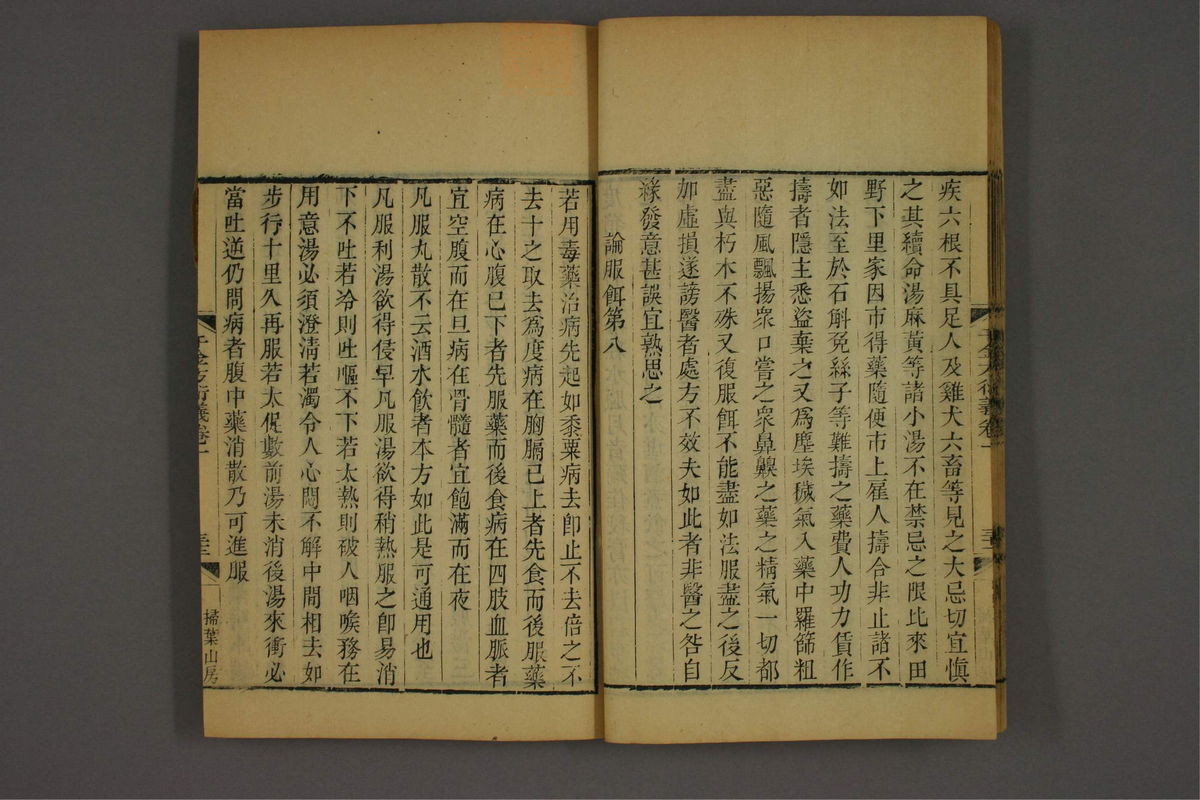 疾六根不具足人及雞犬六畜等見之大忌切宜愼
之其續命湯麻黃等諸小湯不在禁忌之限比來田
野下里家因市得藥隨便市上雇人擣合非止諸不
如法至於石斛兔絲子等難擣之藥費人功力賃作
擣者隱主悉盜棄之又爲塵埃穢氣入藥中羅篩粗
惡隨風飄揚衆口嘗之衆鼻齅之藥之精氣一切都
盡與朽木不殊又復服餌不能盡如法服盡之後反
加虛損遂謗醫者處方不效夫如此者非醫之咎自
緣發意甚誤宜熟思之
論服餌第八
若用毒藥治病先起如黍粟病去卽止不去倍之不
去十之取去爲度病在胸膈已上者先食而後服藥
病在心腹已下者先服藥而後食病在四肢血脈者
宜空腹而在旦病在骨髓者宜飽滿而在夜
凡服丸散不云酒水飲者本方如此是可通用也
凡服利湯欲得侵早凡服湯欲得稍熱服之卽易消
下不吐若冷則吐嘔不下若太熱則破人咽喉務在
用意湯必須澄淸若濁令人心悶不解中間相去如
步行十里久再服若太促數前湯未消後湯來衝必
當吐逆仍問病者腹中藥消散乃可進服
千金方衍義卷一
掃葉山房